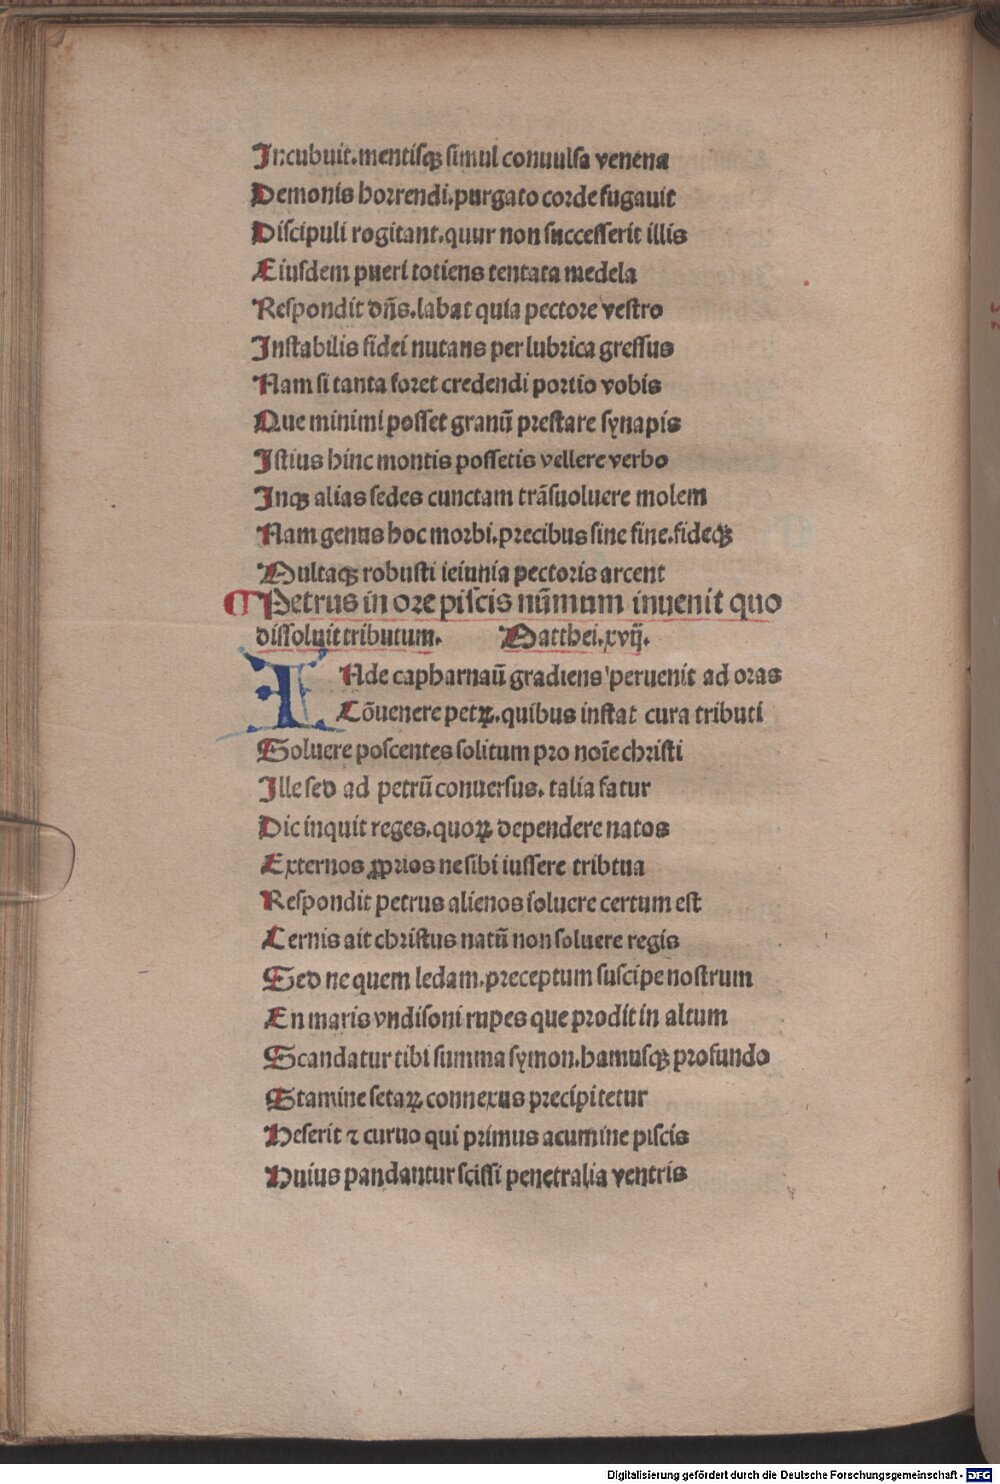 Incubuit.mentisqꝫ simul conuulsa venena
Demonis horrendi.purgato corde fugauit
Discipuli rogitant.quur non successerit illis
Eiusdem pueri totiens tentata medela
Respondit dñs.labat quia pectore vestro
Instabilis fidei nutans per lubrica gressus
Nam si tanta foret credendi portio vobis
Que minimi posset granū prestare synapis
Istius hinc montis possetis vellere verbo
Inqꝫ alias sedes cunctam trāsuoluere molem
Nam genus hoc morbi.precibus sine fine.fideqꝫ
Multaqꝫ robusti ieiunia pectoris arcent
¶Petrus in ore piscis nūmum inuenit quo
dissoluit tributum. Matthei.xvij.
INde capharnaū gradiens peruenit ad oras
Cōuenere petꝝ.quibus instat cura tributi
Soluere poscentes solitum pro noīe christi
Ille sed ad petrū conuersus.talia fatur
Dic inquit reges.quoꝝ dependere natos
Externos ꝓprios ne sibi iussere tribtua
Respondit petrus alienos soluere certum est
Cernis ait christus natū non soluere regis
Sed ne quem ledam.preceptum suscipe nostrum
En maris vndisoni rupes que prodit in altum
Scandatur tibi summa symon.hamusqꝫ profundo
Stamine setaꝝ connexus precipitetur
Heserit ⁊ curuo qui primus acumine piscis
Huius pandantur scissi penetralia ventris
Digitalisierung gefördert durch die Deutsche Forschungsgemeinschaft - DFG